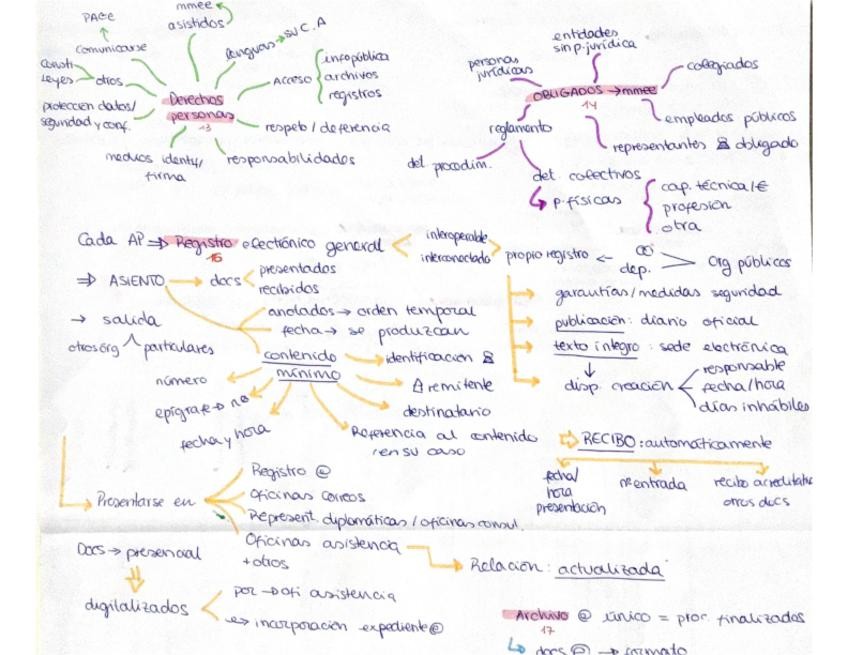 PAGE
mmee
asistidos
lenguas → su C.A
comunicarse
Consti
Leyes
otros
Acceso
infopública
archivos
registros
Derechos
personas
13
protección datos/
seguridad y conf.
respeto / deferencia
medios identy/
firma
responsabilidados
entidades
sin p.jurídica
personas
jurídicas
colegiados
OBLIGADOS → mmee
14
empleados públicos
reglamento
representantes obligado
del procedim.
det colectivos
p.físicas
cap. técnica/€
profesión
otra
Cada AP ⇒ Registro electrónico general
16
interoperable
interconectado
propio registro ←
dep.
Org públicos
⇒ ASIENTO → docs
presentados
recibidos
garantías/medidas seguridad
anotados → orden temporal
fecha → se produzcan
publicación: diario oficial
→ salida
otros órg particulares
texto íntegro: sede electrónica
contenido
mínimo
identificación
disp. creación
responsable
fecha/hora
días inhábiles
número
remitente
epígrafe → nº
destinatario
fecha y hora
Referencia al contenido
/en su caso
RECIBO: automáticamente
fecha/
hora
presentación
nº entrada
recibo acreditativ
otros docs
Presentarse en
Registro @
Oficinas correos
Represent. diplomáticas / oficinas consul.
Oficinas asistencia
+otros
Relación: actualizada
Docs → presencial
digitalizados
por → ofi asistencia
incorporación expediente @
Archivo @ único = proc. finalizados
17
docs @ → formato